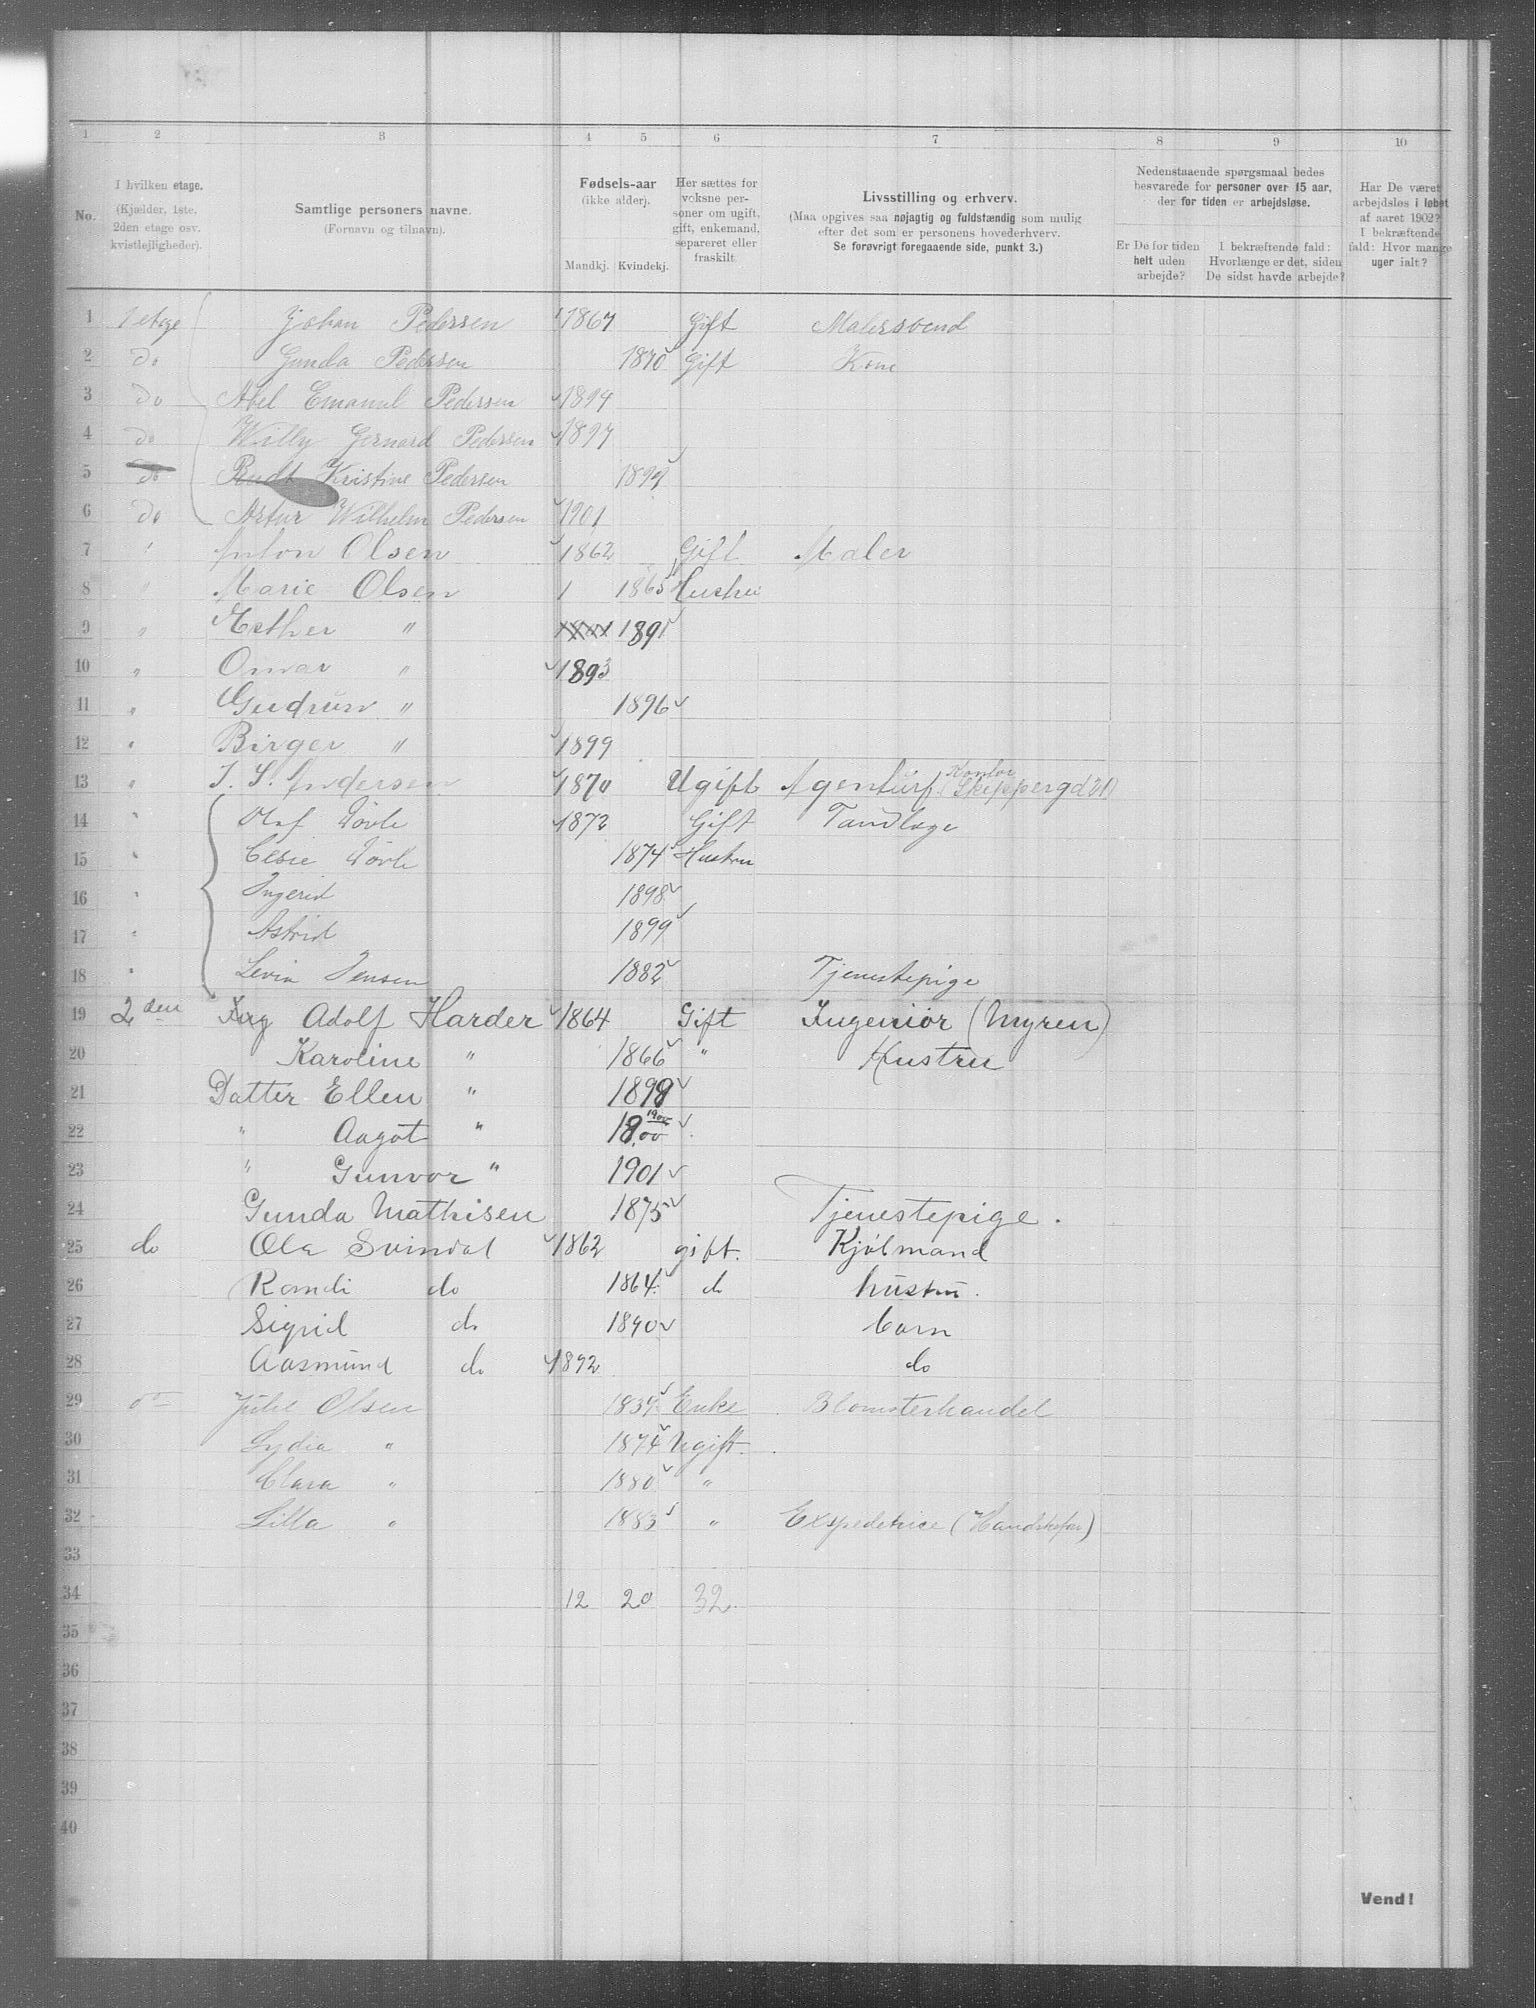 1 2 3 4 5 6 7 8 9 10
No.
I hvilken etage.
(Kjælder, 1ste.
2den etage osv.
kvistlejligheder).
Samtlige personers navne.
(Fornavn og tilnavn).
Fødsels-aar
(ikke alder).
Mandkj. Kvindekj.
Her sættes for
voksne per-
soner om ugift,
gift, enkemand,
separeret eller
fraskilt.
Livsstilling og erhverv.
(Maa opgives saa nøjagtig og fuldstændig som mulig
efter det som er personens hovederhverv.
Se forøvrigt foregaaende side, punkt 3.)
Nedenstaaende spørgsmaal bedes
besvarede for personer over 15 aar,
der for tiden er arbejdsløse.
Er De for tiden
helt uden
arbejde?
I bekræftende fald:
Hvorlænge er det, siden
De sidst havde arbejde?
Har De været
arbejdsløs i løbet
af aaret 1902?
I bekræftende
fald: Hvor mange
uger ialt?
1 1 etage Johan Pedersen 1867 Gift Malersvend
2 do Gunda Pedersen 1870 Gift Kone
3 do Abel Emanuel Pedersen 1894
4 do Willy Gernard Pedersen 1897
5 do Kristine Pedersen 1899
6 do Artur Wilhelm Pedersen 1901
7 " Anton Olsen 1862 Gift Maler
8 " Marie Olsen 1 1865 Hustru
9 " Esther " 1891
10 " Omar " 1893
11 " Gudrun " 1896
12 " Birger " 1899
13 " J. S. Andersen 1870 Ugift Agentur (Kontor Skippergd 21)
14 " Olaf Tövle 1872 Gift Tandlæge
15 " Elsie Tövle 1874 Hustru
16 " Ingerid 1898
17 " Astrid 1899
18 " Levin Jensen 1882 Tjenestepige
19 2 den Adolf Harder 1864 Gift Ingeniør (Myren)
20 Karoline " 1866 " Hustru
21 Datter Ellen " 1898
22 " Aagot " 1900
23 " Gunvor " 1901
24 Gunda Mathisen 1875 Tjenestepige.
25 do Ola Svindal 1862 gift. Kjølmand
26 Randi do 1864 do hustru.
27 Sigrid do 1890 barn
28 Aasmund do 1892 do
29 do Julie Olsen 1839 Enke Blomsterhandel
30 Lydia " 1874 Ugift.
31 Clara " 1880 "
32 Lilla " 1883 " Expeditrice (Handskefor)
33
34 12 20 32.
35
36
37
38
39
40
Vend!